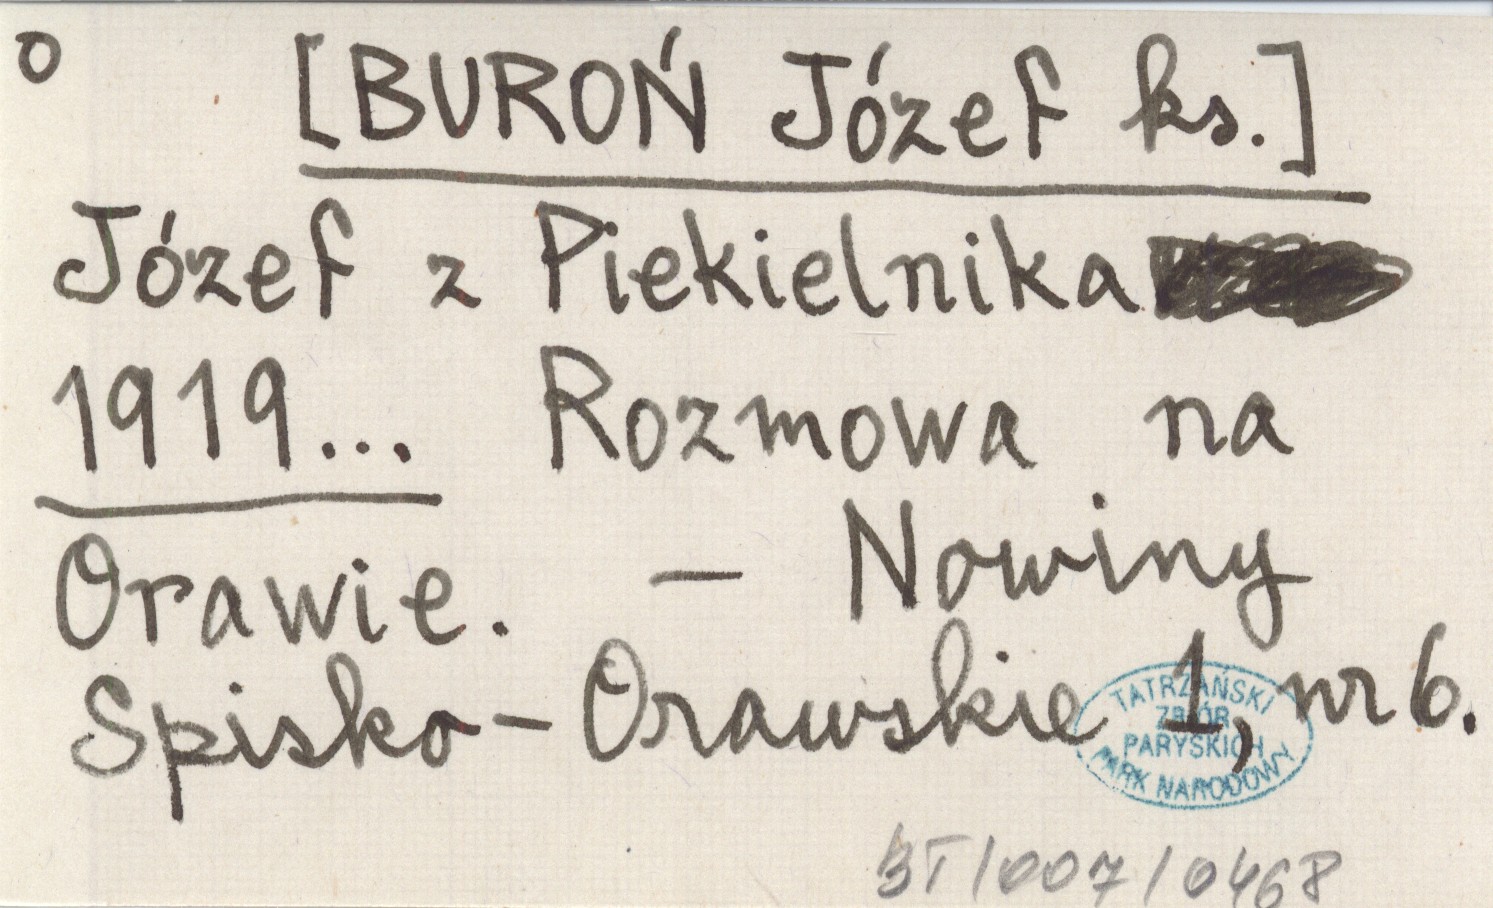 o
[BUROŃ Józef ks.]
Józef z Piekielnika
1919... Rozmowa na
Orawie. — Nowiny
Spisko-Orawskie 1, nr 6.
TATRZAŃSKI
ZBIÓR
PARYSKICH
PARK NARODOWY
BT/007/0468